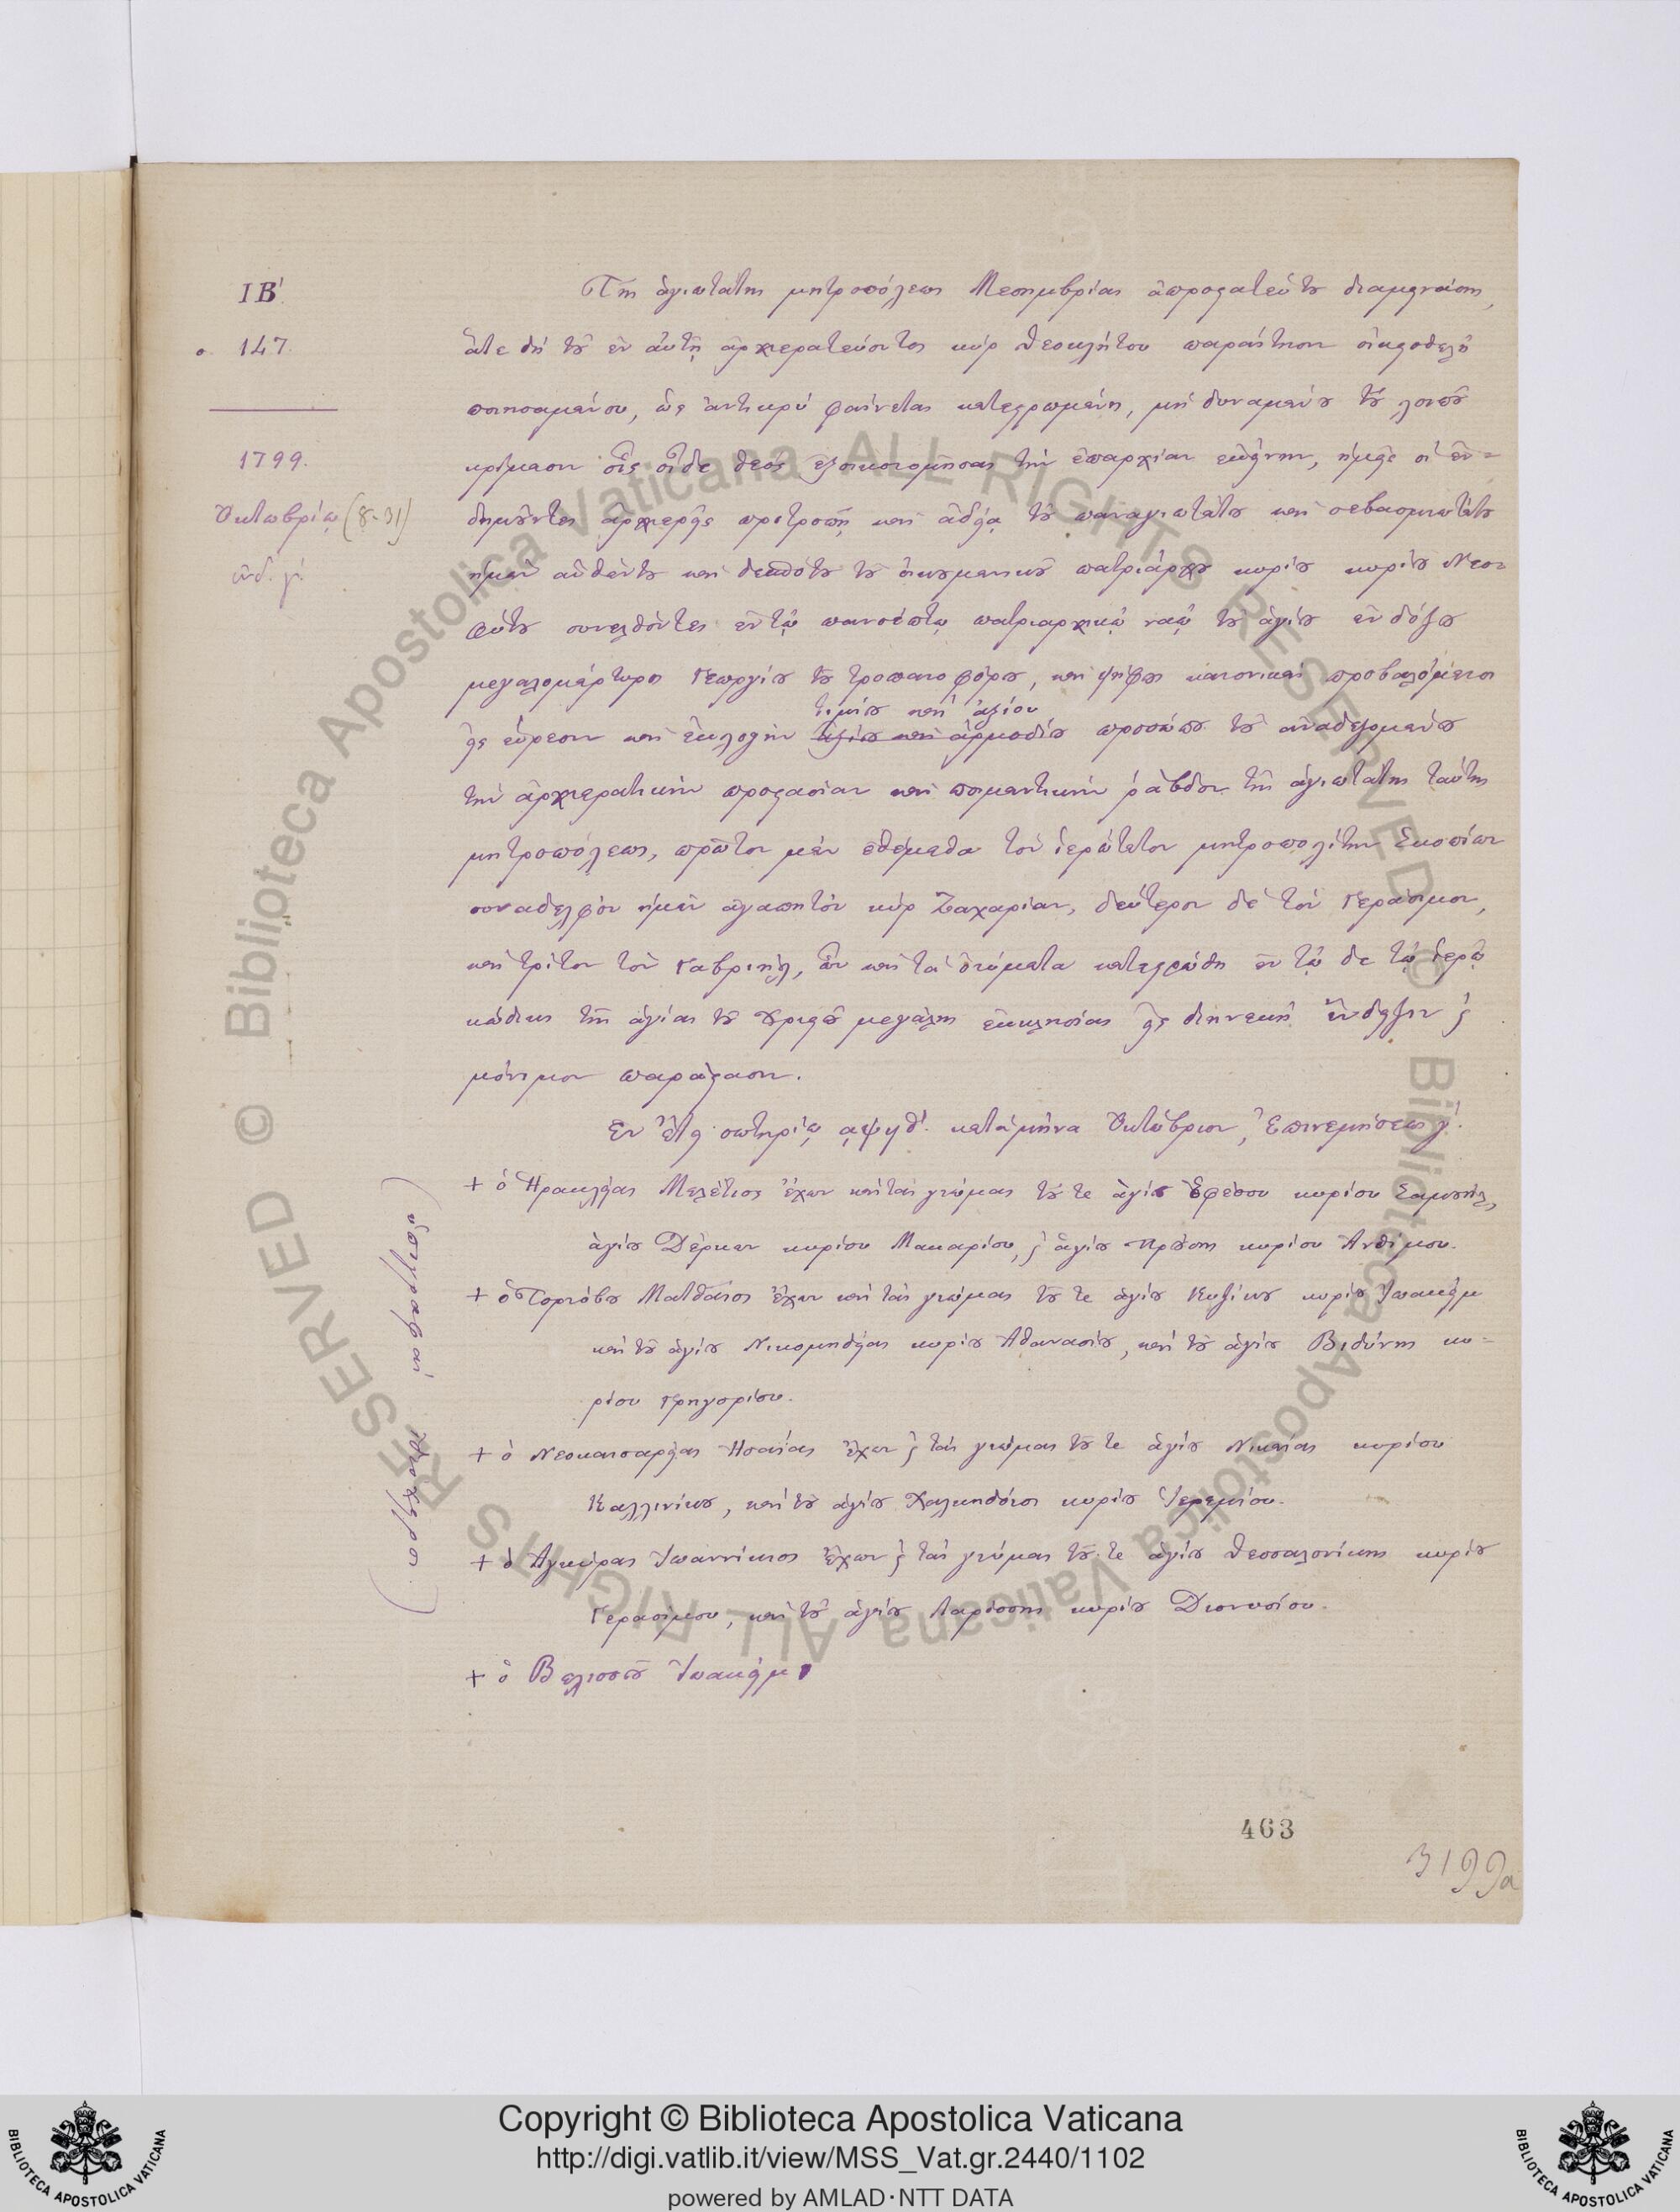 ΙΒ΄.
σ. 147.
1799.
Ὀκτωβρίῳ (8-31)
ἰνδ. γ΄.
Τῆς ἁγιωτάτης μητροπόλεως Μεσημβρίας ἀπροστατεύτου διαμεινάσης,
ἅτε δὴ τοῦ ἐν αὐτῇ ἀρχιερατεύοντος κὺρ Θεοκλήτου παραίτησιν οἰκειοθελῆ
ποιησαμένου, ὡς ἀντικρὺ φαίνεται κατεστρωμένη, μὴ δυναμένου τοῦ λοιποῦ
κρίμασιν οἷς οἶδε θεὸς ἐξοικονομῆσαι τὴν ἐπαρχίαν ἐκείνην, ἡμεῖς οἱ ἐν-
δημοῦντες ἀρχιερεῖς προτροπῇ καὶ ἀδείᾳ τοῦ παναγιωτάτου καὶ σεβασμιωτάτου
ἡμῶν αὐθέντου καὶ δεσπότου τοῦ οἰκουμενικοῦ πατριάρχου κυρίου κυρίου Νεο-
φύτου συνελθόντες ἐν τῷ πανσέπτῳ πατριαρχικῷ ναῷ τοῦ ἁγίου ἐνδόξου
μεγαλομάρτυρος Γεωργίου τοῦ τροπαιοφόρου, καὶ ψήφους κανονικὰς προβαλόμενοι
τιμίου καὶ ἀξίου
εἰς εὕρεσιν καὶ ἐκλογὴν ἀξίου καὶ ἁρμοδίου προσώπου τοῦ ἀναδεξομένου
τὴν ἀρχιερατικὴν προστασίαν καὶ ποιμαντικὴν ῥάβδον τῆς ἁγιωτάτης ταύτης
μητροπόλεως, πρῶτον μὲν ἐθέμεθα τὸν ἱερώτατον μητροπολίτην Σκοπίων
συναδελφὸν ἡμῶν ἀγαπητὸν κὺρ Ζαχαρίαν, δεύτερον δὲ τὸν Γεράσιμον,
καὶ τρίτον τὸν Γαβριήλ, ὧν καὶ τὰ ὀνόματα κατεστρώθη ἐν τῷδε τῷ ἱερῷ
κώδικι τῆς ἁγίας τοῦ Χριστοῦ μεγάλης ἐκκλησίας εἰς διηνεκῆ ἔνδειξιν ϗ
μόνιμον παράστασιν.
Ἐν ἔτει σωτηρίῳ ͵αψϟθ΄. κατὰ μῆνα Ὀκτώβριον, Ἐπινεμήσεως γ΄.
+ ὁ Ἡρακλείας Μελέτιος ἔχων καὶ τὰς γνώμας τοῦ τε ἁγίου Ἐφέσου κυρίου Σαμουήλ,
ἁγίου Δέρκων κυρίου Μακαρίου, ϗ ἁγίου Προύσης κυρίου Ἀνθίμου.
+ ὁ Τορνόβου Ματθαῖος ἔχων καὶ τὰς γνώμας τοῦ τε ἁγίου Κυζίκου κυρίου Ἰωακεὶμ
καὶ τοῦ ἁγίου Νικομηδείας κυρίου Ἀθανασίου, καὶ τοῦ ἁγίου Βιδύνης κυ-
ρίου Γρηγορίου.
+ ὁ Νεοκαισαρείας Ἡσαΐας ἔχων ϗ τὰς γνώμας τοῦ τε ἁγίου Νικαίας κυρίου
Καλλινίκου, καὶ τοῦ ἁγίου Χαλκηδόνος κυρίου Ἱερεμίου.
+ ὁ Ἀγκύρας Ἰωαννίκιος ἔχων ϗ τὰς γνώμας τοῦ τε ἁγίου Θεσσαλονίκης κυρίου
Γερασίμου, καὶ τοῦ ἁγίου Λαρίσσης κυρίου Διονυσίου.
+ ὁ Βελισσοῦ Ἰωακείμ
463
3199a
© Biblioteca Apostolica Vaticana ALL RIGHTS RESERVED
© Biblioteca Apostolica Vaticana ALL RIGHTS RESERVED
BIBLIOTECA APOSTOLICA VATICANA
Copyright © Biblioteca Apostolica Vaticana
http://digi.vatlib.it/view/MSS_Vat.gr.2440/1102
powered by AMLAD·NTT DATA
BIBLIOTECA APOSTOLICA VATICANA